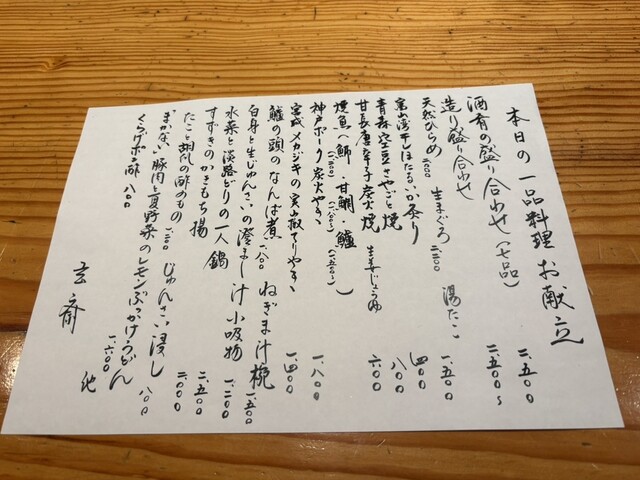 本日の一品料理 お献立
酒肴の盛り合わせ(七品) 二、五〇〇
造り盛り合わせ 二、五〇〇〜
天然ひらめ 二、〇〇〇 生まぐろ 二、二〇〇 湯たこ 一、五〇〇
富山湾干しほたるいか炙り 四〇〇
青森空豆さやごと焼 八〇〇
甘長唐辛子炭火焼 生姜じょうゆ 六〇〇
焼魚へ鰤・甘鯛・鱸
神戸ポーク炭火やき 一、八〇〇
宮城メカジキの実山椒てりやき 一、四〇〇
鱸の頭のなんば煮 一、八〇〇 ねぎま汁椀 一、五〇〇
白身と生じゅんさいの澄まし汁 小吸物 一、二〇〇
水菜と淡路どりの一人鍋 二、五〇〇
すずきのかきもち揚 二、〇〇〇
たこと胡瓜の酢のもの じゅんさい浸し 八〇〇
まかない豚肉と夏野菜のレモンぶっかけうどん 一、六〇〇
くらげポン酢 八〇〇 他
玄斎